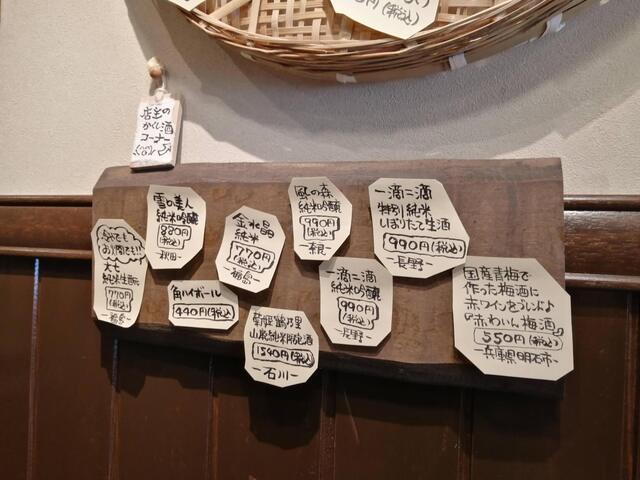 円(税込)
店主の
かくし酒
コーナー
雪の美人
純米吟醸
880円
(税込)
-秋田-
金水晶
純米
770円
(税込)
-福島-
風の森
純米吟醸
990円
(税込)
-奈良-
一滴二滴
特別純米
しぼりたて生酒
990円(税込)
-長野-
大七
純米生酛
770円
(税込)
-福島-
角ハイボール
440円(税込)
菊姫 鶴乃里
山廃純米
1540円(税込)
-石川-
一滴二滴
純米吟醸
990円
(税込)
-長野-
国産青梅で
作った梅酒に
赤ワインをブレンド♪
『赤わいん梅酒』
550円(税込)
-兵庫県明石市-